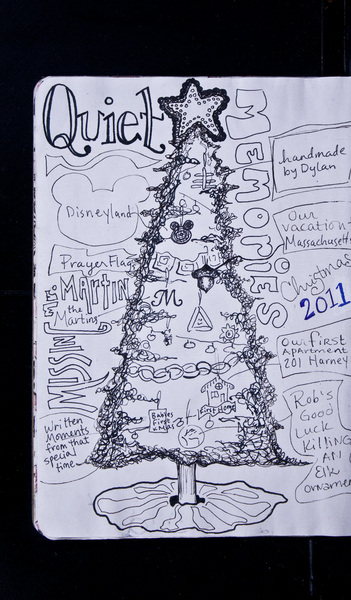 Quiet
MEMORIES
handmade
by Dylan
Disneyland
Our
vacation
Massachusett
Prayer Flag
Christmas
2011
Mr. MARTIN
the
Martins
MISSIN
M
Our first
Apartment
201 Harney
Rob's
Good
Luck
Killing
An
Elk
ornamen
Babies
First
Xmas
Written
Moments
from that
special
time